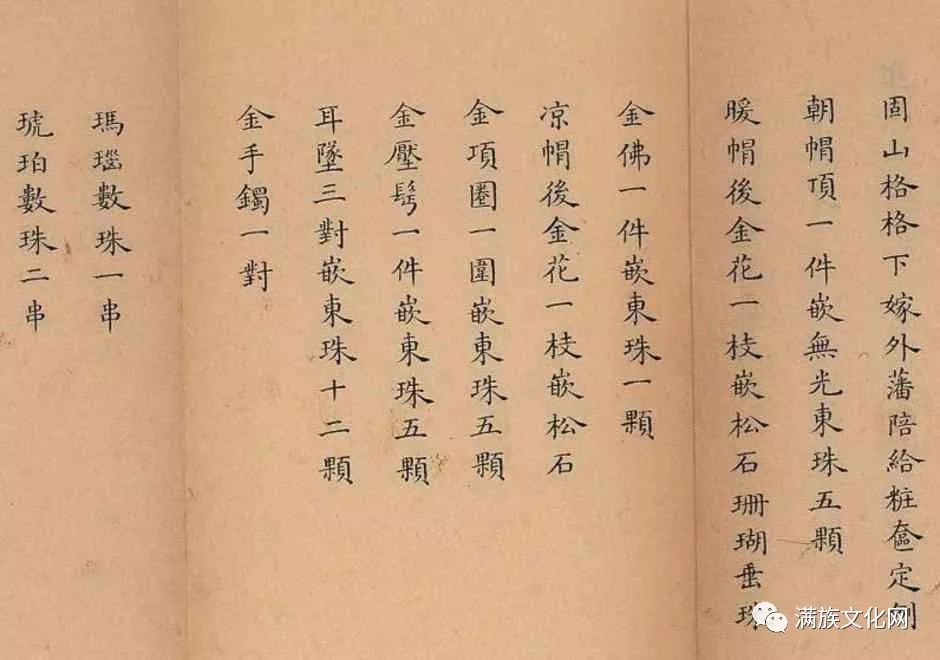 固山格格下嫁外藩陪給粧奩定例
朝帽頂一件嵌無光東珠五顆
暖帽後金花一枝嵌松石珊瑚垂珠
金佛一件嵌東珠一顆
凉帽後金花一枝嵌松石
金項圈一圍嵌東珠五顆
金壓髩一件嵌東珠五顆
耳墜三對嵌東珠十二顆
金手鐲一對
瑪瑙數珠一串
琥珀數珠二串
满族文化网